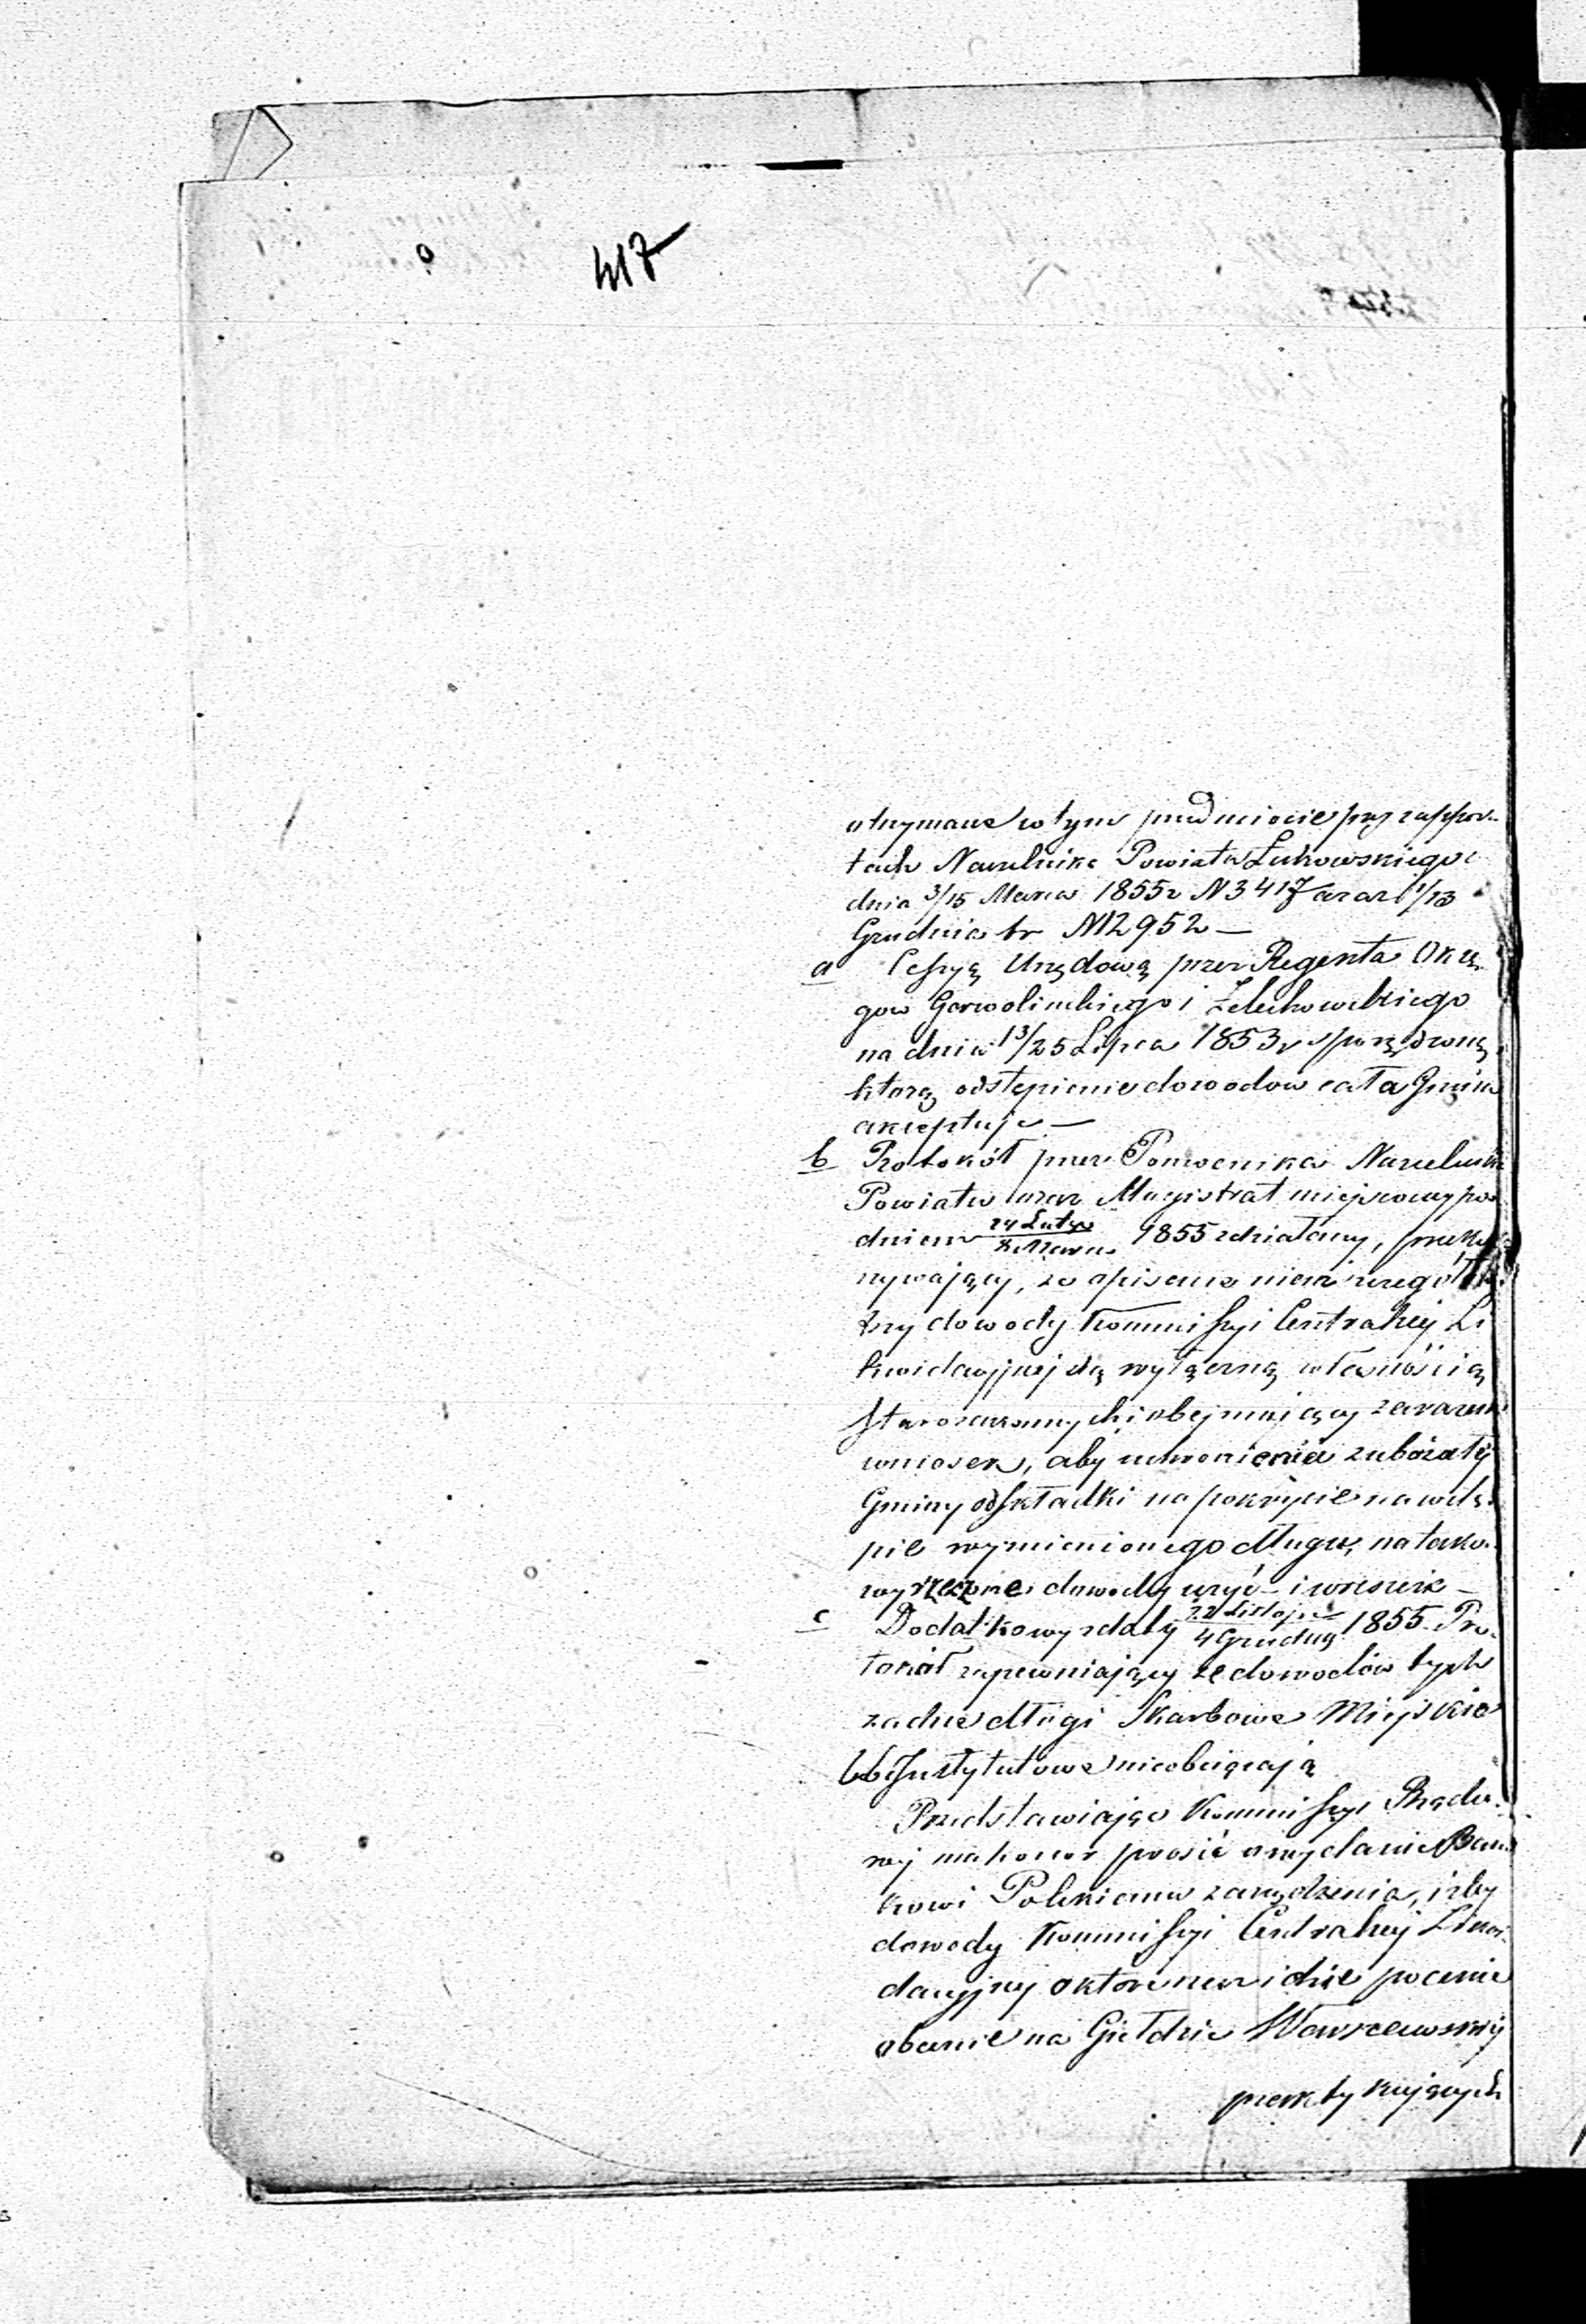 417
otrzymane w tym przedmiocie przy rappor-
tach Naczelnika Powiatu Łukowskiego z
dnia 3/15 Marca 1855 r N 3417 oraz 1/13
Grudnia tr N12952 —
a Cessyą Urzędową przez Regenta Okrę-
gow Garwolinskiego i Żelechowskiego
na dniu 13/25 Lipca 1853 r sporządzoną,
którą odstąpienie dowodow cała Gmina
akceptuje —
b Protokół przez Pomocnika Naczelnika
Powiatu oraz Magistrat miejscowy pod
dniem 24 Lutego / 8 Marca 1855 zdziałany, przeko-
nywający, ze opisane niżej
dowody Kommissyi Centralnej Li
kwidacyjnej są wyłączną własnością
Starozakonnych i obejmujący zarazem
wniosek, aby uchronienia zubożałej
Gminy od składki na pokrycie na wstę-
pie wymienionego długu, na takowy
rzeczone dowody użyć — i wreszcie —
c Dodatkowy z daty 22 Listopa / 4 Grudnia 1855 Pro-
tokół zapewniający ze dowodów tych
zadne długi Skarbowe Miejskie
lub Instytutowe nieobciązają
Przedstawiając Kommissyi Rządo-
wej ma honor prosić o wydanie Ban-
kowi Polskiemu zarządzenia, izby
dowody Kommissyi Centralnej Likwi-
dacyjnej o które idzie po cenie
obecnie na Giełdzie Warszawskiej
praktykujących